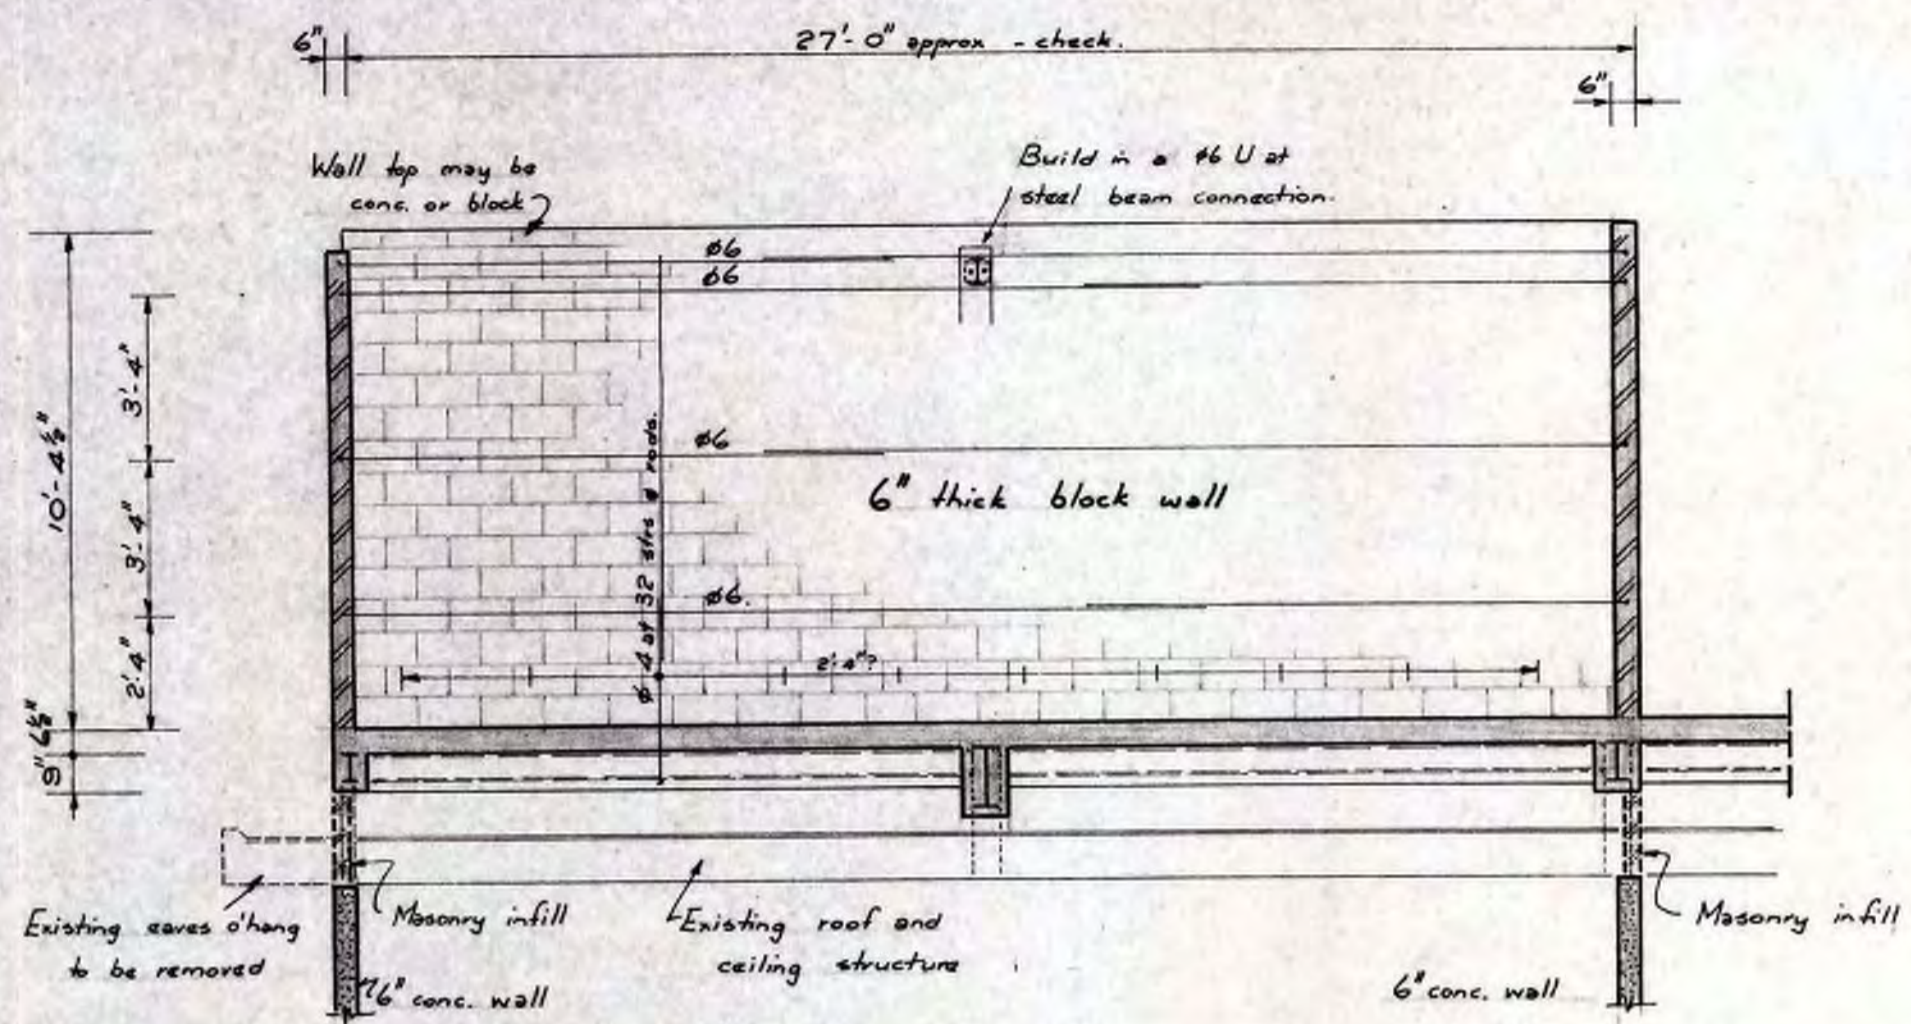 6"
27'-0" approx - check.
6"
Wall top may be
conc. or block
Build in a ø6 U at
steel beam connection.
ø6
ø6
3'-4"
10'-4½"
ø6
6" thick block wall
3'-4"
ø6.
ø 4 at 32 strs & roods.
2'-4"?
2'-4"
6½"
9"
Existing eaves o'hang
to be removed
Masonry infill
Existing roof and
ceiling structure
Masonry infill
6" conc. wall
6" conc. wall